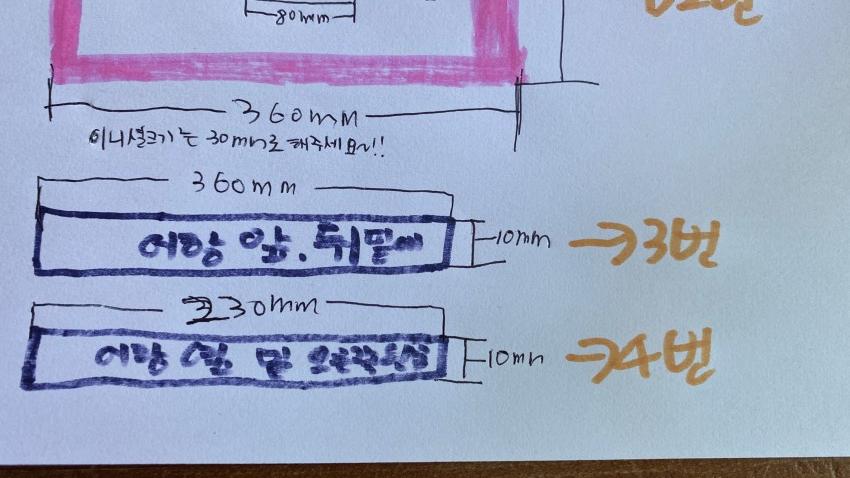 80mm
360mm
이니셜크기는 30mm로 해주세요~!!
360mm
어항 앞.뒤밑에
10mm
→3번
330mm
어항 옆 및
10mm
→4번